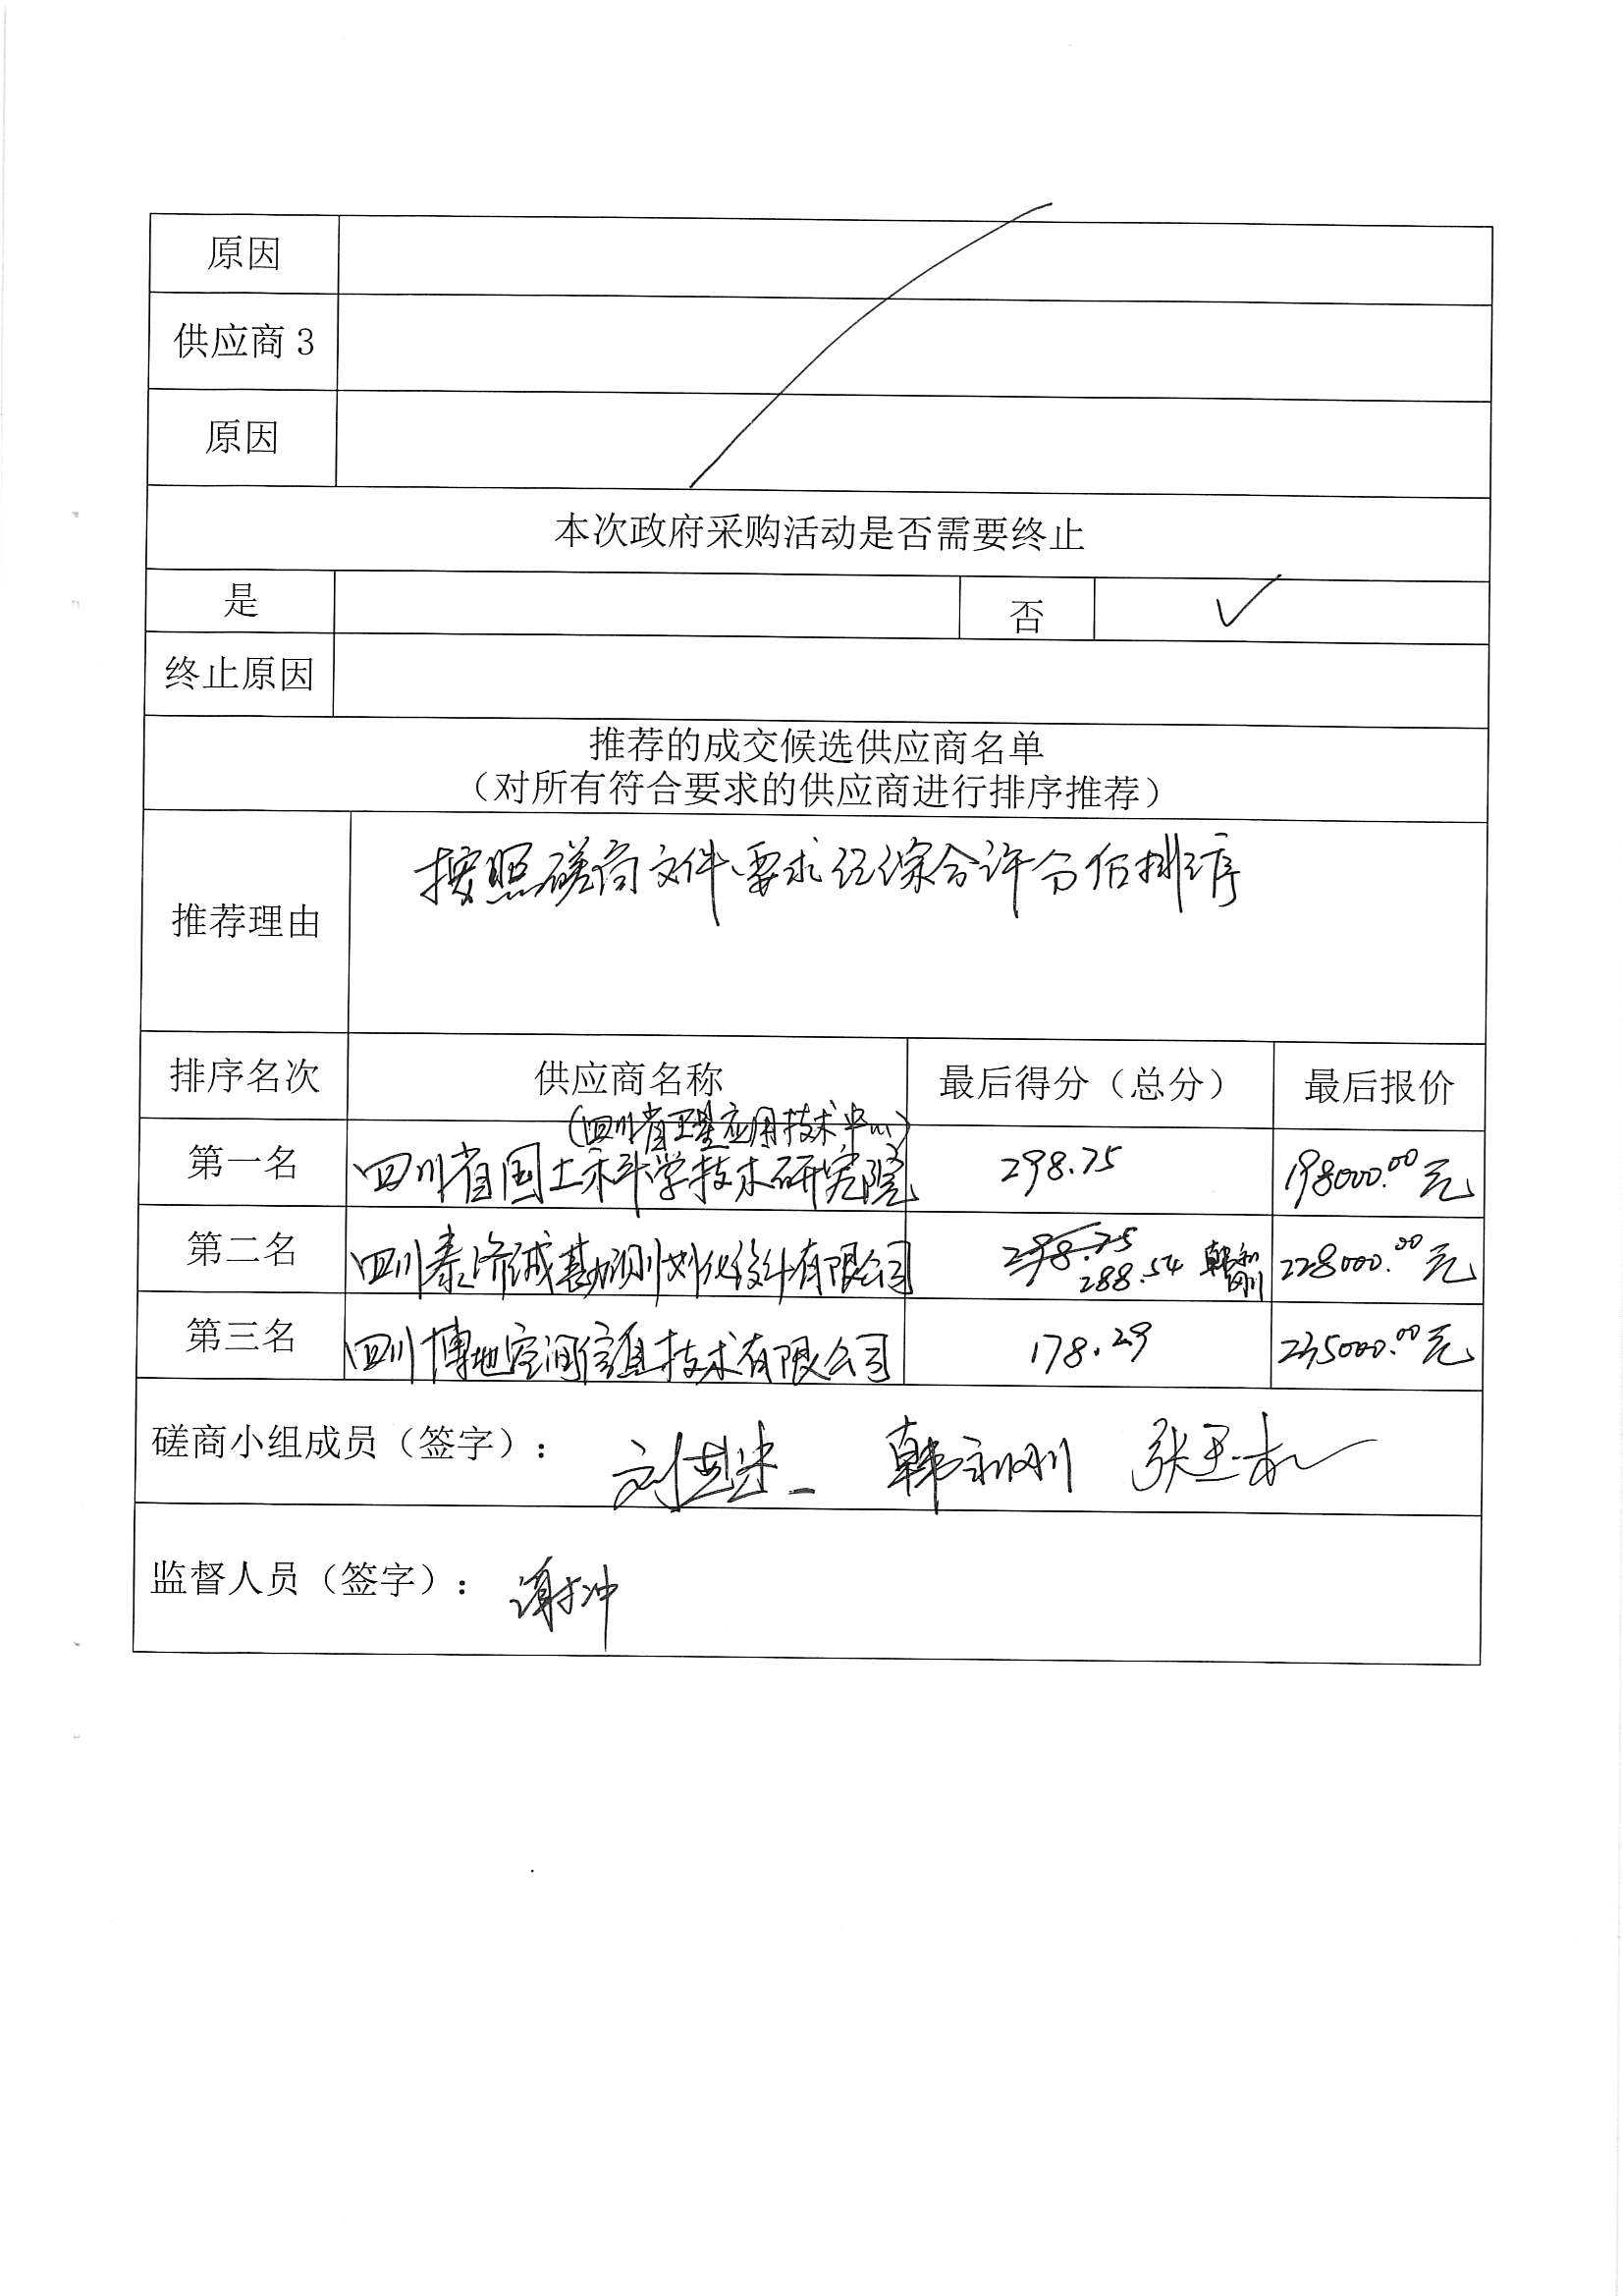 原因
供应商 3
原因
本次政府采购活动是否需要终止
是 否 ✓
终止原因
推荐的成交候选供应商名单
（对所有符合要求的供应商进行排序推荐）
推荐理由 按照磋商文件要求经综合评分后排序
排序名次 供应商名称 最后得分（总分） 最后报价
(四川省卫星应用技术中心)
第一名 四川省国土科学技术研究院 298.75 198000.00元
第二名 四川泰济诚基础测绘设计有限公司 298.75 228000.00元
288.54 韩永刚
第三名 四川博地空间信息技术有限公司 178.29 235000.00元
磋商小组成员（签字）： 韩永刚
监督人员（签字）： 谢冲